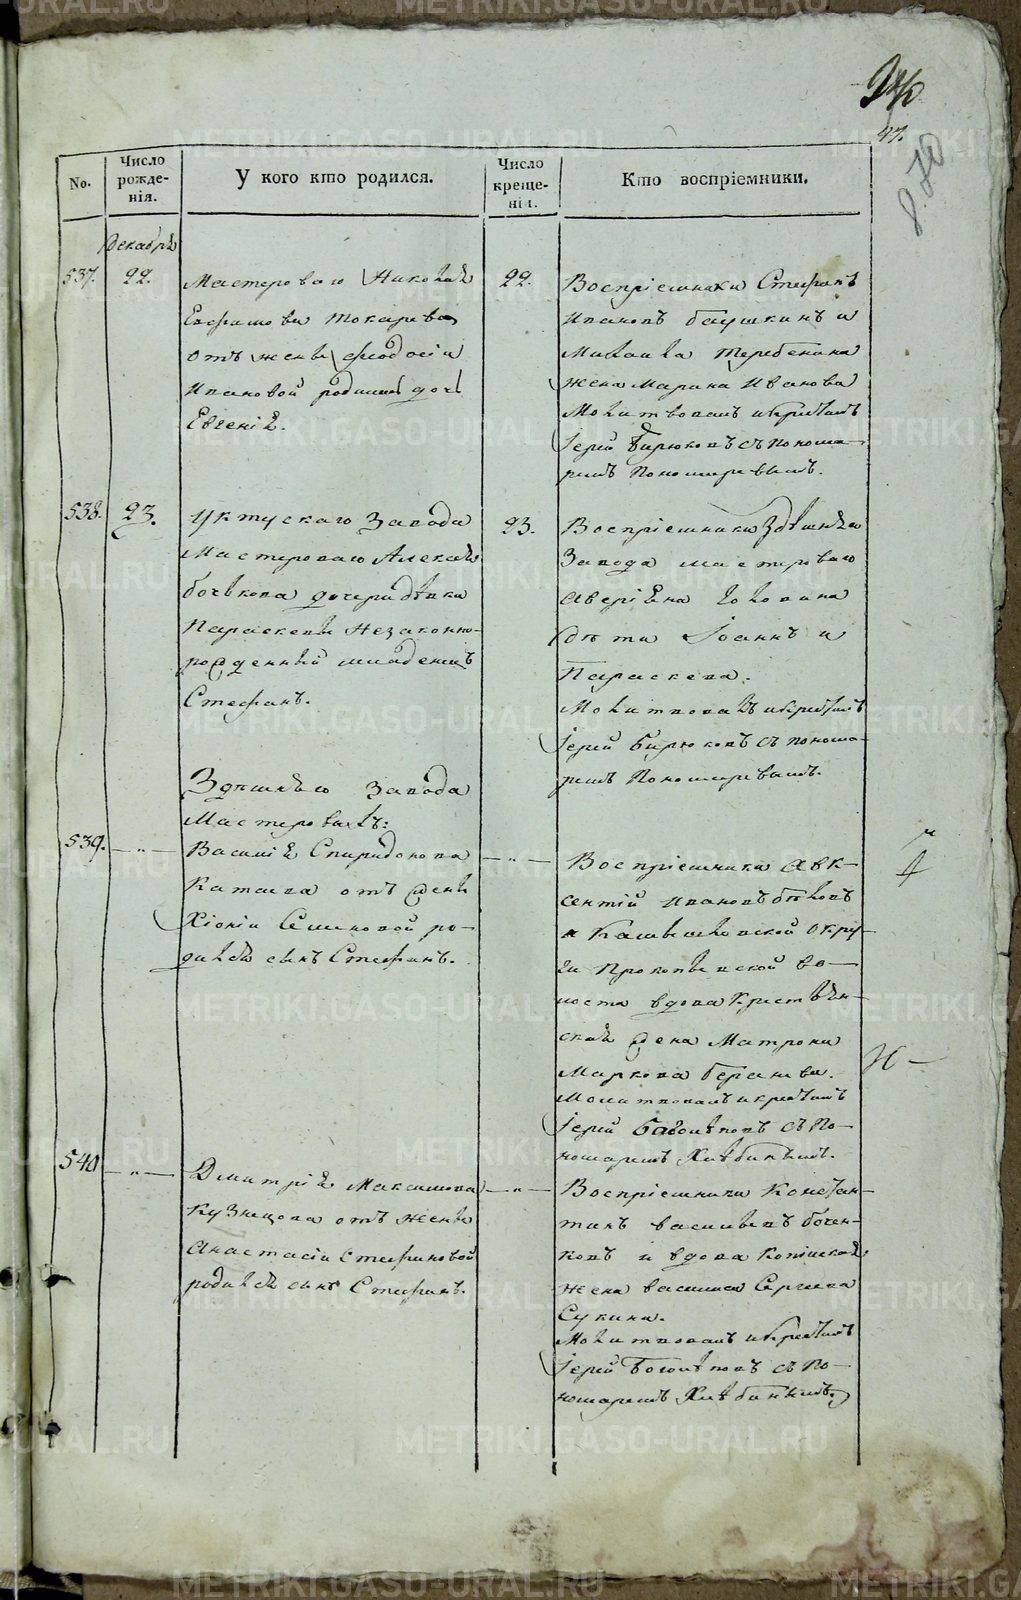 47.
No.
Число рожде-нія.
У кого кто родился.
Число креще-нія.
Кто воспріемники.
Декабрь
537.
22.
Мастероваго Николая
Евфимова Токарева
отъ жены Феодосіи
Ивановой родилась дочь
Евгенія.
22.
Воспріемники Стефанъ
Ивановъ
и
Михаила Теребенина
жена Марина Иванова
Молитвовалъ и крестилъ
Іерей Бирюковъ съ понома-
ремъ Пономаревымъ.
538.
23.
Уктускаго Завода
Мастероваго Алексея
Бочкова дочери девки
Параскевы Незаконно-
рожденный младенецъ
Стефанъ.
23.
Воспріемники Здешняго
Завода мастероваго
Аверіяна Голована
дети Іоаннъ и
Параскева.
Молитвовалъ и крестилъ
Іерей Бирюковъ съ понома-
ремъ Пономаревымъ.
Здешняго Завода
Мастеровыхъ:
539.
— „ —
Василія Спиридонова
Катаева отъ жены
Хіоніи Семеновой ро-
дился сынъ Стефанъ.
— „ —
Воспріемники Авк-
сентій Ивановъ Беловъ
и Камышловской окру-
ги Прокопьевской во-
лости вдова Крестьян-
ская жена Матрона
Маркова
Молитвовалъ и крестилъ
Іерей Боголеповъ съ По-
номаремъ Хлебинымъ.
540
— „ —
Дмитрія Максимова
Кузнецова отъ жены
Анастасіи Стефановой
родился сынъ Стефанъ.
— „ —
Воспріемники Констан-
тинъ Васильевъ Бочен-
ковъ и вдова
жена Васса Сергеева
Сукина.
Молитвовалъ и крестилъ
Іерей Боголеповъ съ По-
номаремъ Хлебинымъ.
METRIKI.GASO-URAL.RU